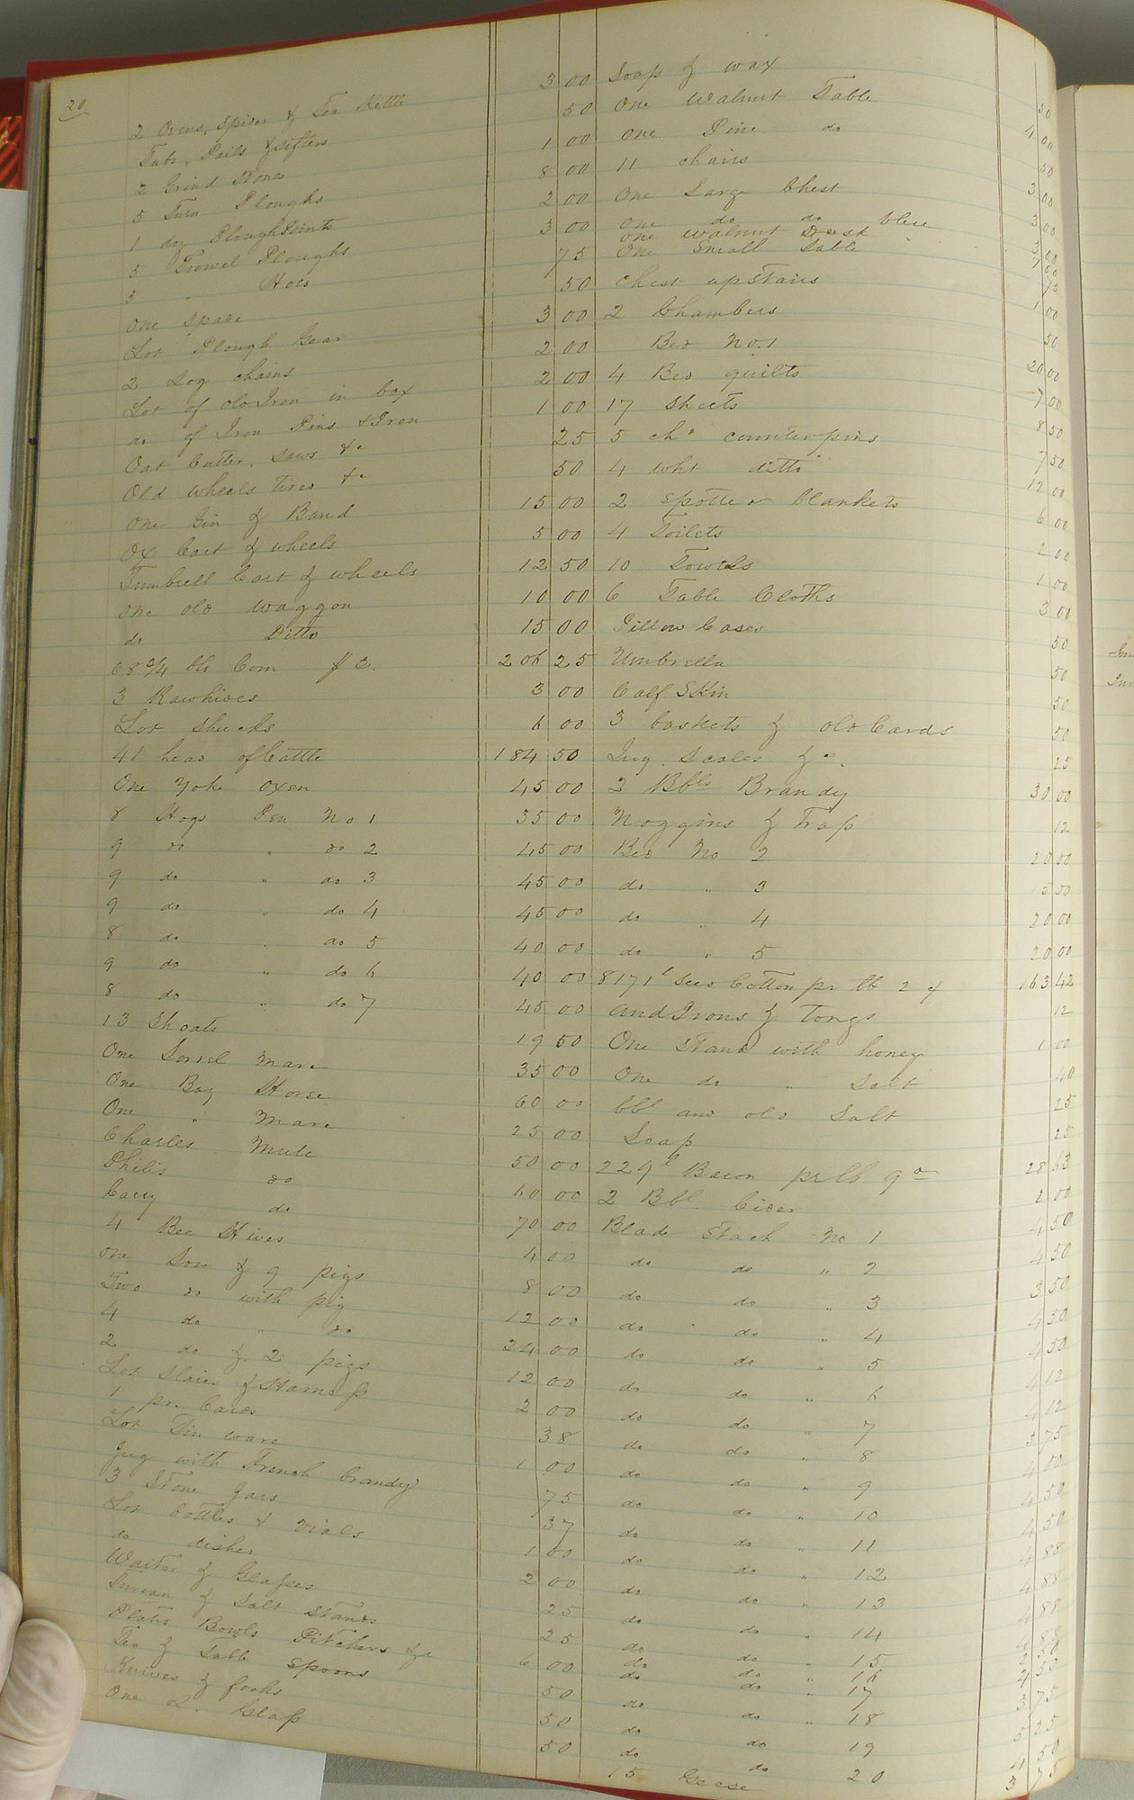 20
2 Ovens, Spider & Tea Kettle 3 00
Tubs, Pails & Sifters 50
2 Grind Stones 1 00
5 Turn Ploughs 8 00
1 doz Plough Points 2 00
5 Trowel Ploughs 3 00
3 " Hoes 75
One Spade 50
Lot Plough Gear 3 00
2 Log chains 2 00
Lot of old Iron in box 2 00
do of Iron Pins & Iron 1 00
Oat Cutter, Saws &c 25
Old wheels tires &c 50
One Gin & Band 15 00
Ox Cart & wheels 5 00
Tumbrell Cart & wheels 12 50
One old waggon 10 00
do Ditto 15 00
68 3/4 bls Corn $ 3. 206 25
3 Rawhides 3 00
Lot Shucks 6 00
41 head of Cattle 184 50
One Yoke Oxen 45 00
8 Hogs Pen No 1 35 00
9 do " do 2 45 00
9 do " do 3 45 00
9 do " do 4 45 00
8 do " do 5 40 00
9 do " do 6 40 00
8 do " do 7 45 00
13 Shoats 19 50
One Sorrel Mare 35 00
One Bay Horse 60 00
One " Mare 25 00
Charles Mule 50 00
Philis do 60 00
Cary do 70 00
4 Bee Hives 4 00
One Sow & 9 pigs 8 00
Two do with pig 12 00
4 do " do 24 00
2 do & 2 pigs 12 00
Lot Slaies & Harness 2 00
1 pr. Cards 38
Lot Tin ware 1 00
Jug with French brandy 75
3 Stone Jars 37
Lot bottles & vials 1 00
do dishes 2 00
Waiter & Glasses 25
Tureen & Salt Stands 25
Plates Bowls Pitchers &c 6 00
Tea & Table Spoons 50
Knives & forks 50
One L. Glass 50
Soap & wax 50
One Walnut Table 4 00
One Pine do 50
11 chairs 3 00
One Large Chest 3 00
One do do blue
One Walnut Desk
One Small Table
Chest upstairs 1 00
2 Chambers 50
Bed No. 1 20 00
4 Bed quilts 7 00
17 Sheets 8 50
5 chd counterpins 7 50
4 wht ditto 12 00
2 Spotted blankets 6 00
4 Toilets 2 00
10 Towels 1 00
6 Table Cloths 3 00
Pillow Cases 50
Umbrella 50
Calf Skin 50
3 baskets & old Cards 50
Jug. Scales &c. 25
3 Bbls Brandy 30 00
Noggins & Trap 12
Bed No 2 20 00
do " 3 15 00
do " 4 20 00
do " 5 20 00
8171 l Seed Cotton pr lb 2 c 163 42
And Irons & Tongs 12
One Stand with honey 1 00
One do " Salt 40
bbl and old Salt 25
Soap 25
229 l Bacon pr lb 9 28 63
2 Bbl. Cider 2 00
Blade Stack No 1 4 50
do do " 2 4 50
do do " 3 3 50
do do " 4 4 50
do do " 5 4 50
do do " 6 4 12
do do " 7 4 12
do do " 8 3 75
do do " 9 4 00
do do " 10 4 50
do do " 11 4 50
do do " 12 4 88
do do " 13 4 88
do do " 14 4 88
do do " 15
do do " 16
do do " 17 3 75
do do " 18 5 25
do do 19 4 50
do do 20 3 75
15 Geese